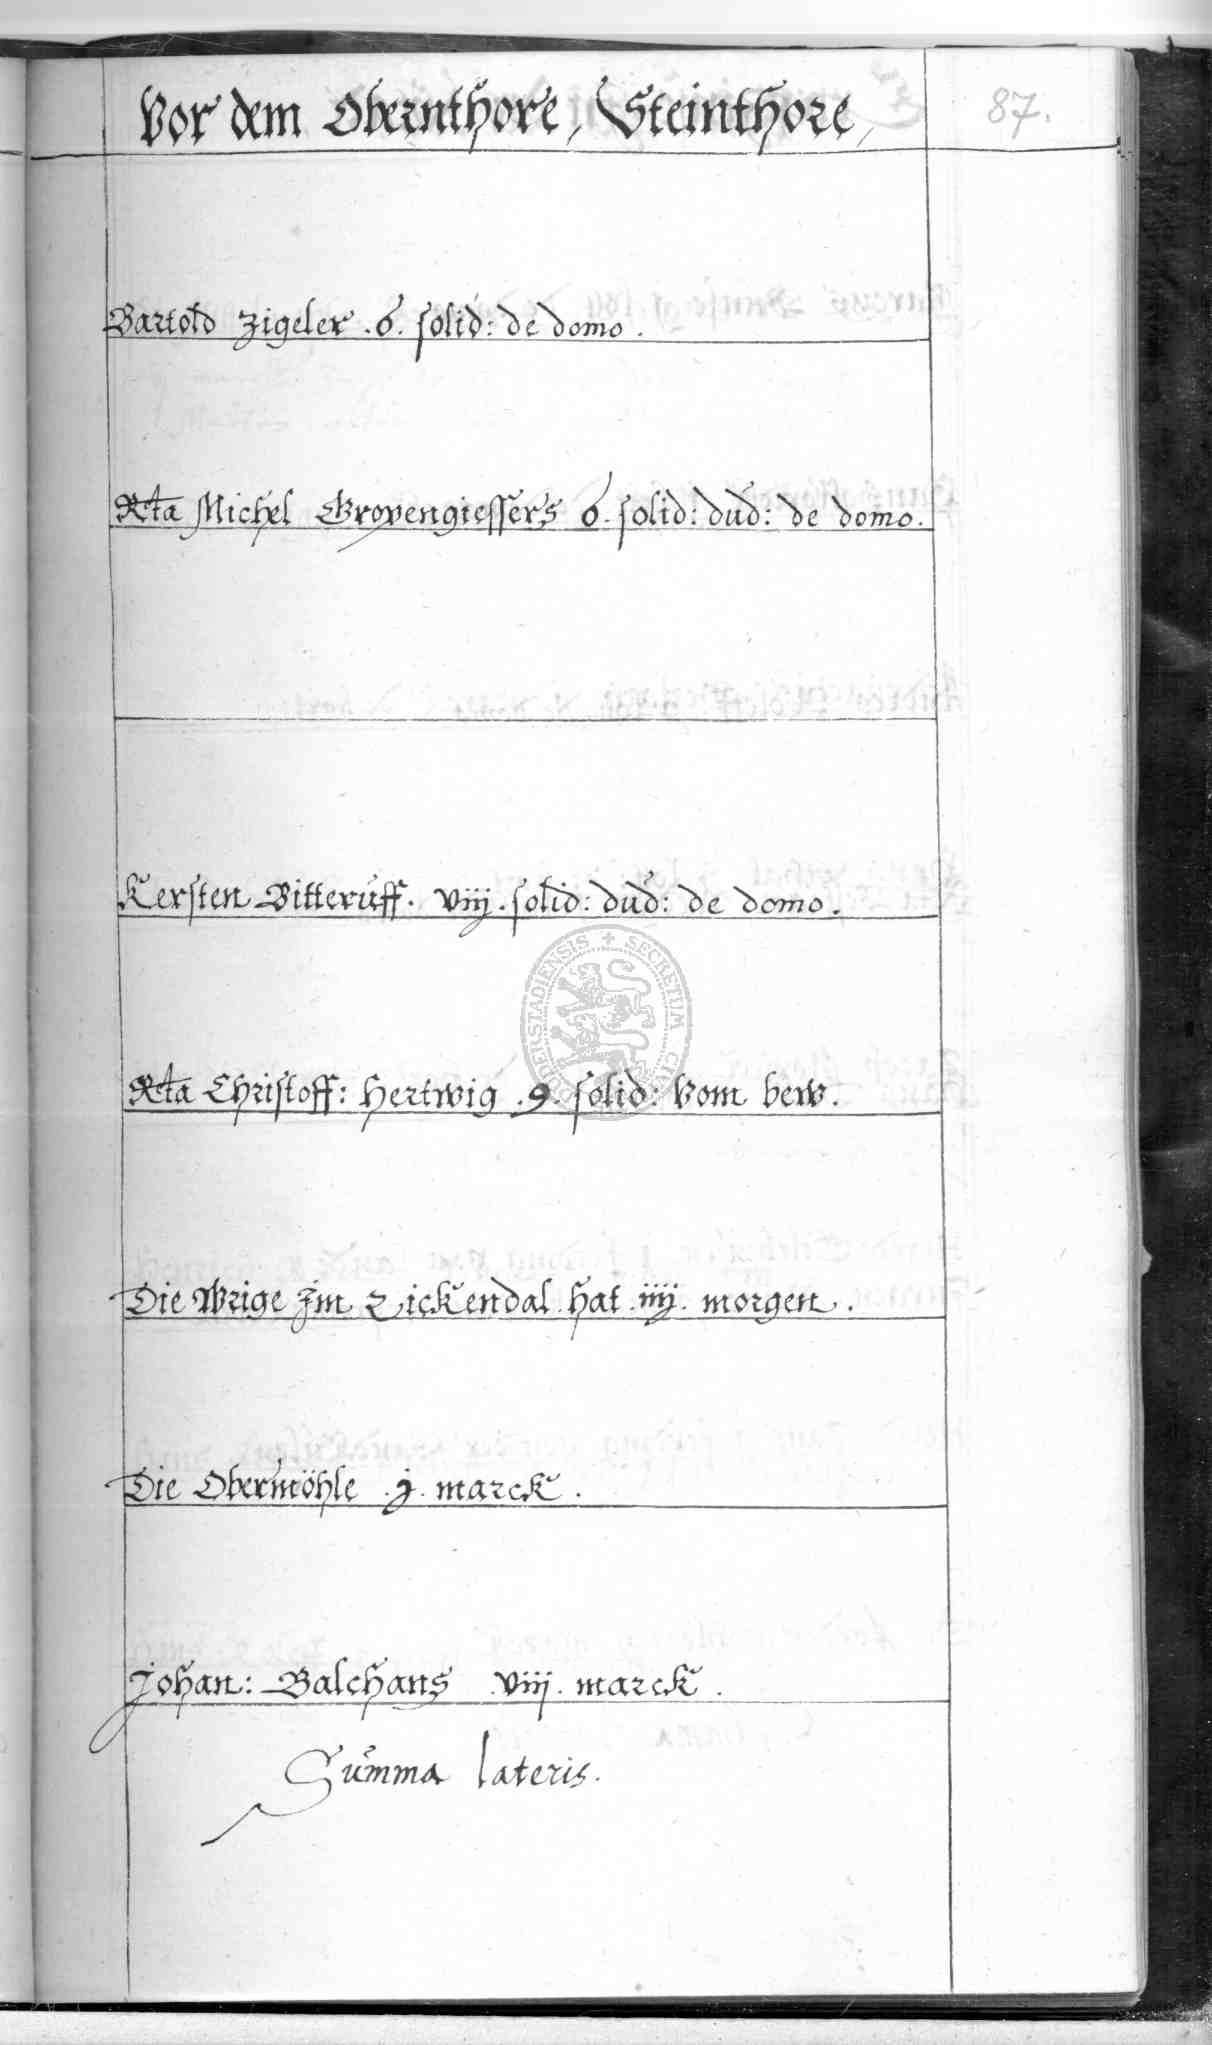 Vor dem Obernthore, Steinthore,
87.
Bartold Zigeler .6. solid: de domo.
Rta Michel Gropengiessers 6. solid: dud: de domo.
Kersten Bitteruff. viij. solid: dud: de domo.
DERSTADIENSIS + SECRETUM CI
Rta Christoff: Hertwig .9. solid: Vom bew.
Die Wrige Jm Zickendal hat .iiij. morgen.
Die Obermöhle .j. marck.
Johan: Balchans viij. marck.
Summa lateris.